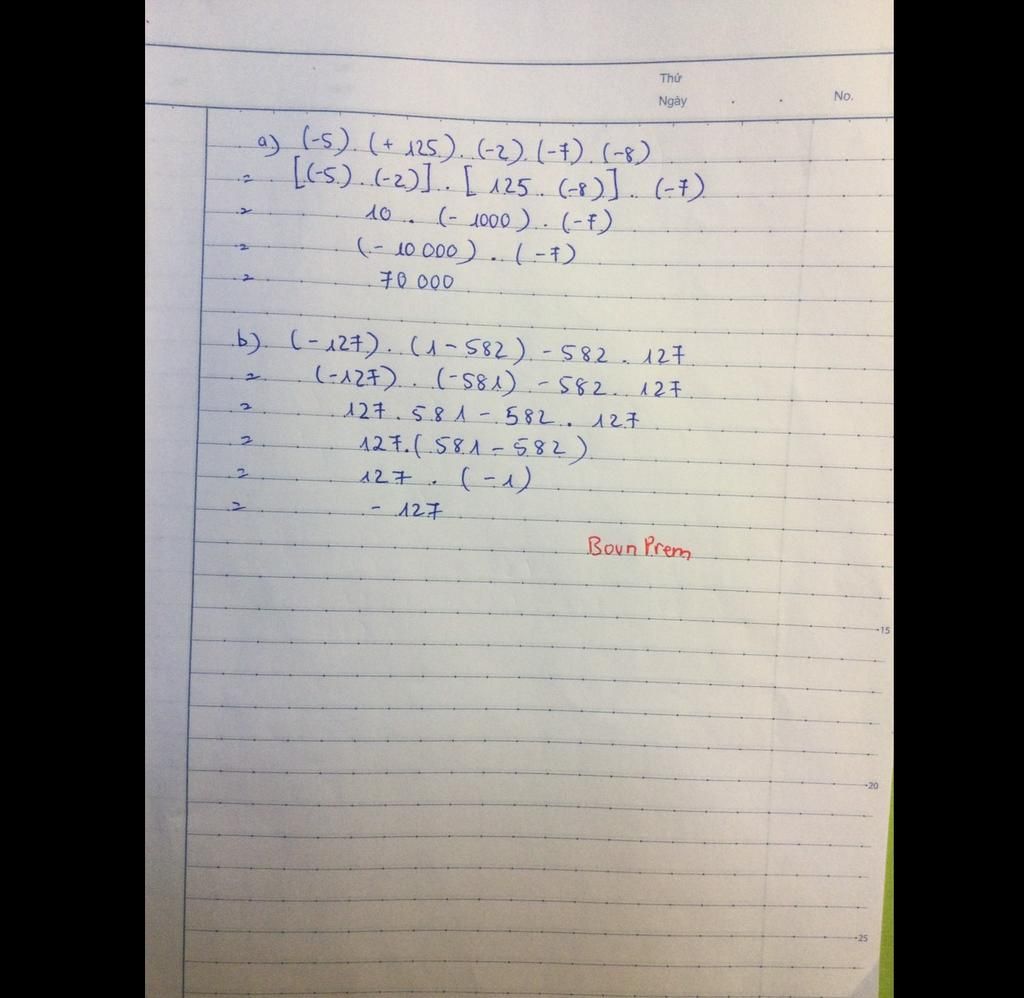 Thứ
Ngày . . No.
a) (-5). (+ 125). (-2). (-7). (-8)
= [(-5). (-2)]. [125. (-8)]. (-7)
= 10. (-1000). (-7)
= (-10 000). (-7)
= 70 000
b). (-127). (1-582) - 582. 127
= (-127). (-581) - 582. 127
= 127. 581 - 582. 127
= 127.(581-582)
= 127. (-1)
= - 127
Boun Prem
15
20
25